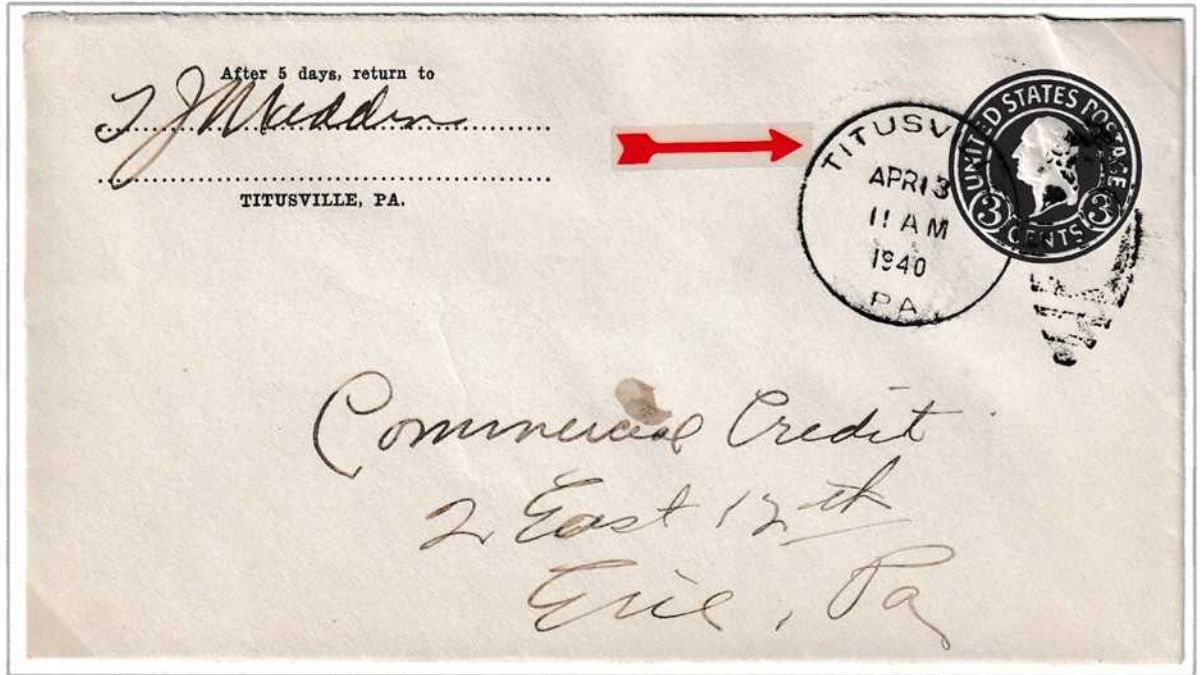 After 5 days, return to
T J Madden
TITUSVILLE, PA.
TITUSV
APR 13
11 AM
1940
PA
UNITED STATES POSTAGE
3 3
CENTS
Commercial Credit
2 East 12th
Erie, Pa